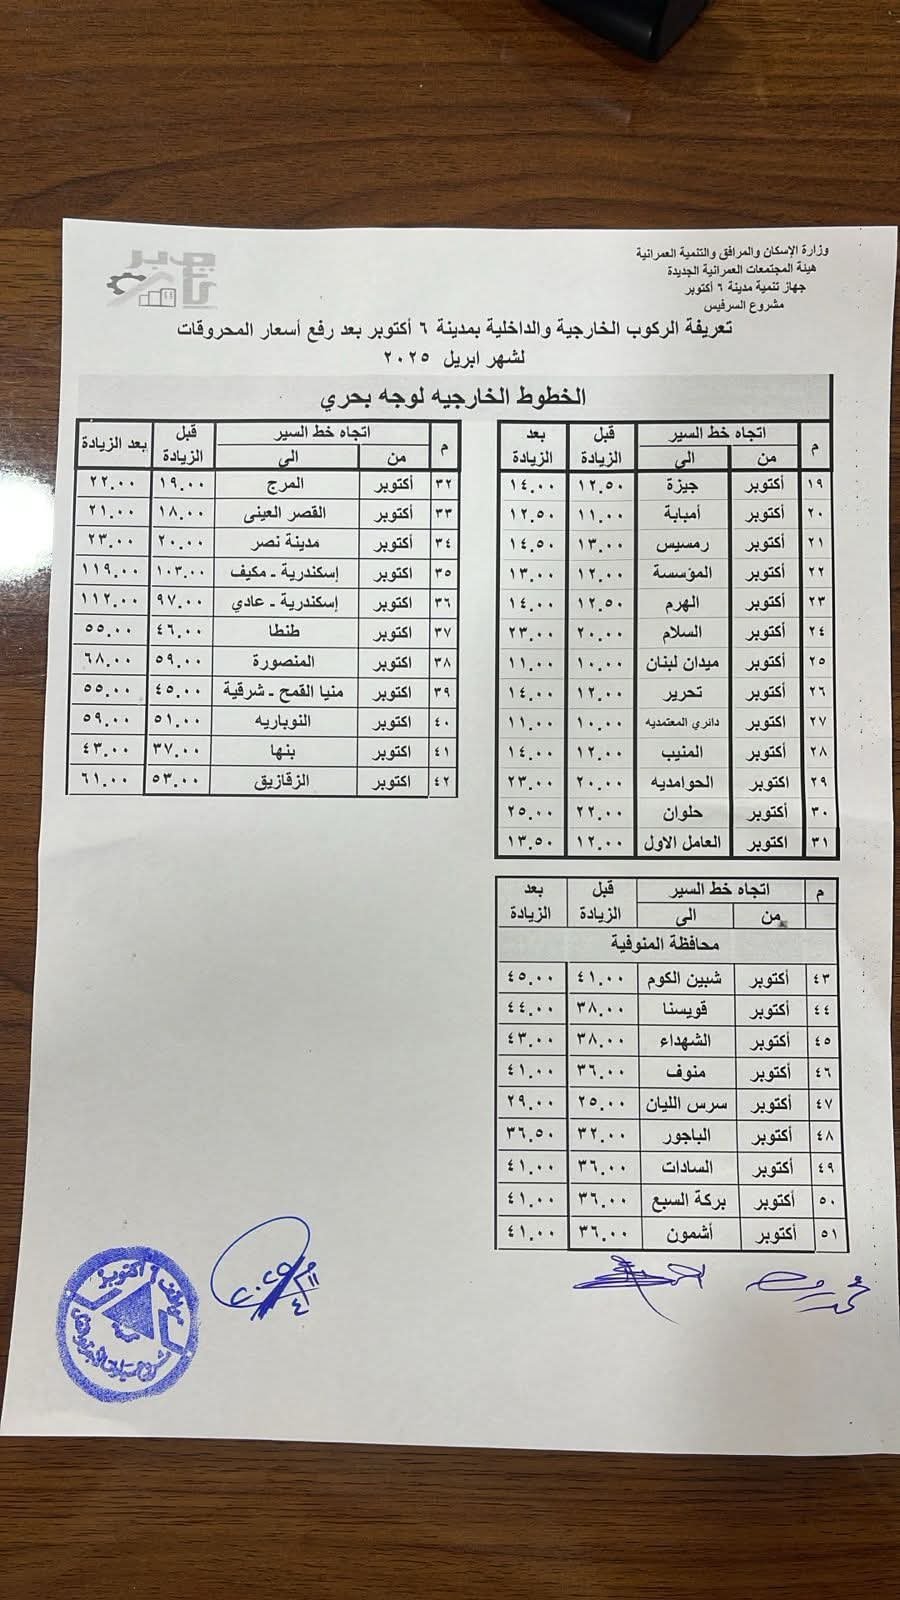 وزارة الإسكان والمرافق والتنمية العمرانية
هيئة المجتمعات العمرانية الجديدة
جهاز تنمية مدينة ٦ أكتوبر
مشروع السرفيس
تعريفة الركوب الخارجية والداخلية بمدينة ٦ أكتوبر بعد رفع أسعار المحروقات
لشهر ابريل ٢٠٢٥
الخطوط الخارجيه لوجه بحري
م اتجاه خط السير قبل الزيادة بعد الزيادة
من الى
١٩ أكتوبر جيزة ١٢.٥٠ ١٤.٠٠
٢٠ أكتوبر أمبابة ١١.٠٠ ١٢.٥٠
٢١ أكتوبر رمسيس ١٣.٠٠ ١٤.٥٠
٢٢ أكتوبر المؤسسة ١٢.٠٠ ١٣.٠٠
٢٣ أكتوبر الهرم ١٢.٥٠ ١٤.٠٠
٢٤ أكتوبر السلام ٢٠.٠٠ ٢٣.٠٠
٢٥ أكتوبر ميدان لبنان ١٠.٠٠ ١١.٠٠
٢٦ أكتوبر تحرير ١٢.٠٠ ١٤.٠٠
٢٧ اكتوبر دائري المعتمديه ١٠.٠٠ ١١.٠٠
٢٨ أكتوبر المنيب ١٢.٠٠ ١٤.٠٠
٢٩ اكتوبر الحوامديه ٢٠.٠٠ ٢٣.٠٠
٣٠ أكتوبر حلوان ٢٢.٠٠ ٢٥.٠٠
٣١ اكتوبر العامل الاول ١٢.٠٠ ١٣.٥٠
م اتجاه خط السير قبل الزيادة بعد الزيادة
من الى
٣٢ أكتوبر المرج ١٩.٠٠ ٢٢.٠٠
٣٣ أكتوبر القصر العينى ١٨.٠٠ ٢١.٠٠
٣٤ أكتوبر مدينة نصر ٢٠.٠٠ ٢٣.٠٠
٣٥ اكتوبر إسكندرية - مكيف ١٠٣.٠٠ ١١٩.٠٠
٣٦ اكتوبر إسكندرية - عادي ٩٧.٠٠ ١١٢.٠٠
٣٧ اكتوبر طنطا ٤٦.٠٠ ٥٥.٠٠
٣٨ اكتوبر المنصورة ٥٩.٠٠ ٦٨.٠٠
٣٩ اكتوبر منيا القمح - شرقية ٤٥.٠٠ ٥٥.٠٠
٤٠ اكتوبر النوباريه ٥١.٠٠ ٥٩.٠٠
٤١ اكتوبر بنها ٣٧.٠٠ ٤٣.٠٠
٤٢ اكتوبر الزقازيق ٥٣.٠٠ ٦١.٠٠
م اتجاه خط السير قبل الزيادة بعد الزيادة
من الى
محافظة المنوفية
٤٣ أكتوبر شبين الكوم ٤١.٠٠ ٤٥.٠٠
٤٤ أكتوبر قويسنا ٣٨.٠٠ ٤٤.٠٠
٤٥ أكتوبر الشهداء ٣٨.٠٠ ٤٣.٠٠
٤٦ أكتوبر منوف ٣٦.٠٠ ٤١.٠٠
٤٧ أكتوبر سرس الليان ٢٥.٠٠ ٢٩.٠٠
٤٨ أكتوبر الباجور ٣٢.٠٠ ٣٦.٥٠
٤٩ أكتوبر السادات ٣٦.٠٠ ٤١.٠٠
٥٠ أكتوبر بركة السبع ٣٦.٠٠ ٤١.٠٠
٥١ أكتوبر أشمون ٣٦.٠٠ ٤١.٠٠